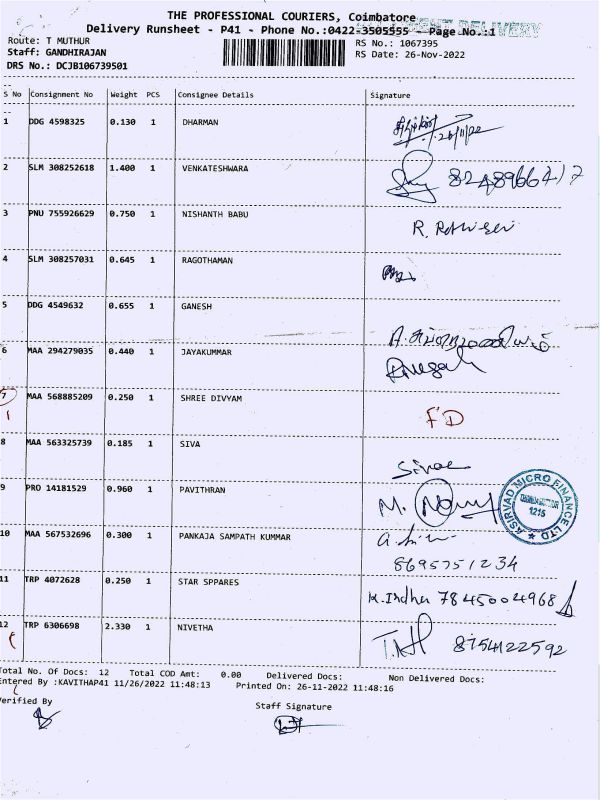 THE PROFESSIONAL COURIERS, Coimbatore
Delivery Runsheet - P41 - Phone No.:0422-3505555 - Page No.:1
Route: T MUTHUR
RS No.: 1067395
Staff: GANDHIRAJAN
RS Date: 26-Nov-2022
DRS No.: DCJB106739501
S No Consignment No Weight PCS Consignee Details Signature
1 DDG 4598325 0.130 1 DHARMAN 26/11/22
2 SLM 308252618 1.400 1 VENKATESHWARA
3 PNU 755926629 0.750 1 NISHANTH BABU
4 SLM 308257031 0.645 1 RAGOTHAMAN
5 DDG 4549632 0.655 1 GANESH
6 MAA 294279035 0.440 1 JAYAKUMMAR
7 MAA 568885209 0.250 1 SHREE DIVYAM FD
8 MAA 563325739 0.185 1 SIVA Siva
9 PRO 14181529 0.960 1 PAVITHRAN M.
ASIRVAD MICRO FINANCE LTD
1215
10 MAA 567532696 0.300 1 PANKAJA SAMPATH KUMMAR
8695751234
11 TRP 4072628 0.250 1 STAR SPPARES K. Indhu 7845004968
12 TRP 6306698 2.330 1 NIVETHA 8754122592
Total No. Of Docs: 12 Total COD Amt: 0.00 Delivered Docs: Non Delivered Docs:
Entered By :KAVITHAP41 11/26/2022 11:48:13 Printed On: 26-11-2022 11:48:16
Verified By
Staff Signature